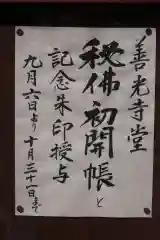 善光寺堂
秘佛初開帳と
記念朱印授与
九月六日より十月三十一日まで